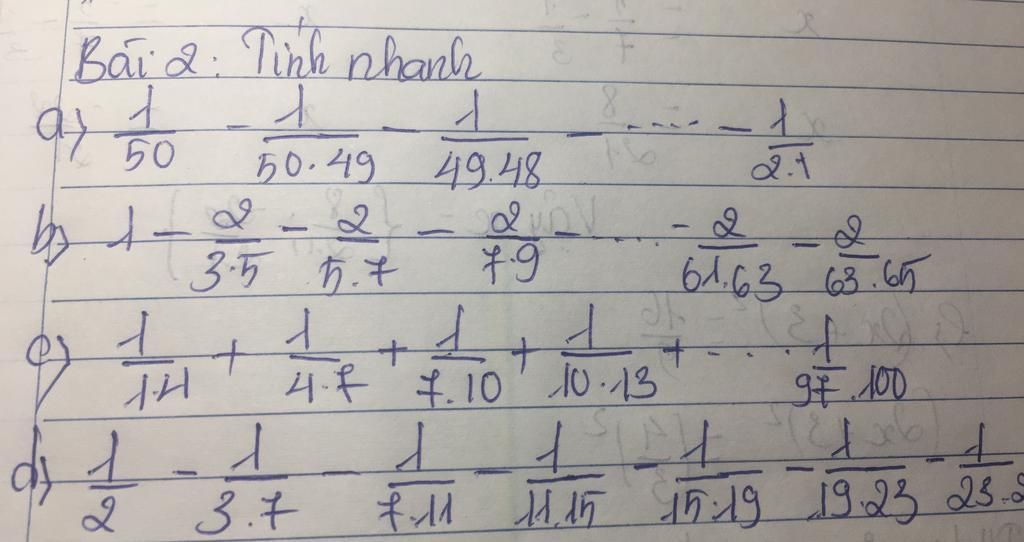 Bài 2: Tính nhanh
a) 1/50 - 1/50.49 - 1/49.48 - ..... - 1/2.1
b) 1 - 2/3.5 - 2/5.7 - 2/7.9 - .... - 2/61.63 - 2/63.65
c) 1/1.4 + 1/4.7 + 1/7.10 + 1/10.13 + .... 1/97.100
d) 1/2 - 1/3.7 - 1/7.11 - 1/11.15 - 1/15.19 - 1/19.23 - 1/23.2